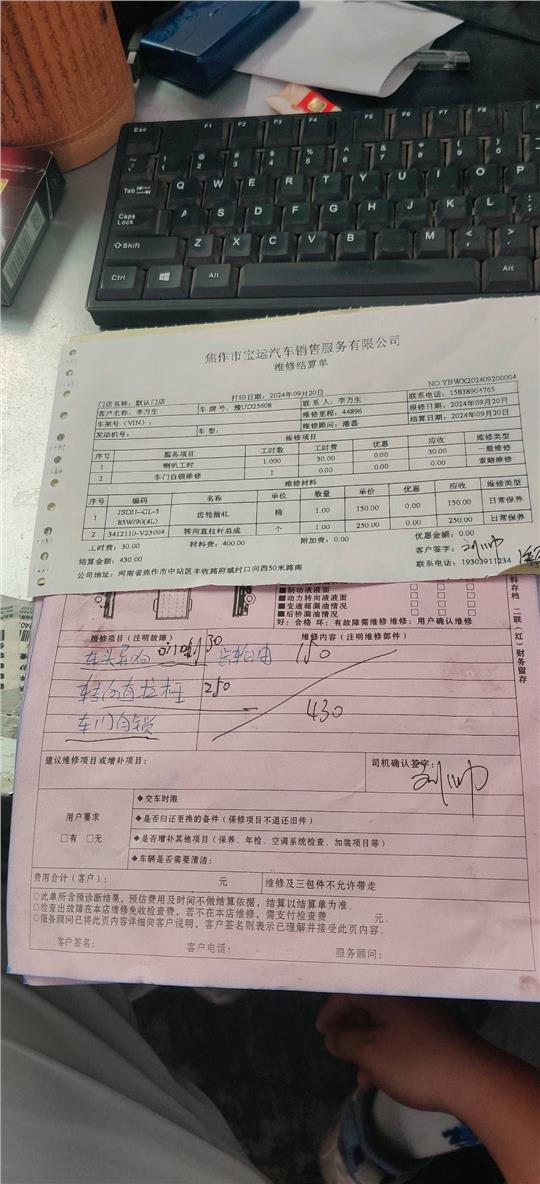 Esc F1 F2 F3 F4 F5 F6 F7 F8
Tab Q W E R T Y U I O P
Caps Lock A S D F G H J K L
Shift Z X C V B N M
Ctrl Alt Alt
焦作市宝运汽车销售服务有限公司
维修结算单
NO.YBWX202409200004
门店名称：默认门店 打印日期：2024年09月20日 联系电话：15838904765
客户名称：李万生 车牌号：豫UD25608 联系人：李万生 报修日期：2024年09月20日
车架号（VIN）： 维修里程：44896 结算日期：2024年09月20日
发动机号： 车型： 维修顾问：潘磊
维修项目
序号 服务项目 工时数 工时费 优惠 应收 维修类型
1 喇叭工时 1.000 30.00 0.00 30.00 一般维修
2 车门自锁维修 1 0.00 0.00 0.00 索赔维修
维修材料
序号 编码 名称 单位 数量 单价 优惠 应收 维修类型
1 JSDII-GL-5 85W/90(4L) 齿轮油4L 桶 1.00 150.00 0.00 150.00 日常保养
2 3412110-V23004 转向直拉杆总成 个 1.00 250.00 0.00 250.00 日常保养
工时费：30.00 材料费：400.00 附加费：0.00 优惠金额：0.00
结算金额：430.00 客户签字：
公司地址：河南省焦作市中站区丰收路府城村口向西50米路南 联系电话：19303911234
■制动液液面
■动力转向液液面
■变速箱漏油情况
■后桥漏油情况
好：合格 坏：有故障需维修 维修：用户确认维修
料存档 二联（红）财务留存
报修项目（注明故障） 维修内容（注明维修部件）
30 齿轮油 150
转向直拉杆 250
车门自锁 430
建议维修项目或增补项目： 司机确认签字：
用户要求
□有 □无
◆交车时限
◆是否归还更换的备件（保修项目不退还旧件）
◆是否增补其他项目（保养、年检、空调系统检查、加装项目等）
◆车辆是否需要清洁：
费用合计（客户）： 元 维修及三包件不允许带走
○此单所含预诊断结果，预估费用及时间不做结算依据，结算以结算单为准。
○检查出故障在本店维修免收检查费，若不在本店维修，需支付检查费 元。
○服务顾问已将此页内容详细向客户说明，客户签名则表示已理解并接受此页内容。
客户签名： 客户电话： 服务顾问：